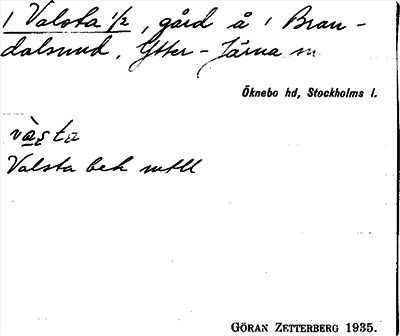 1 Valsta 1/2, gård å 1 Bran-
dalsund, Ytter-Järna sn
Öknebo hd, Stockholms l.
vàsta
Valsta bek mtl
GÖRAN ZETTERBERG 1935.